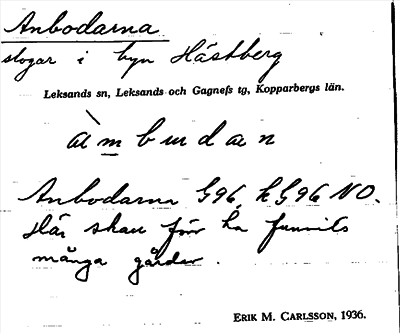 Anbodarna
slogar i byn Hästberg
Leksands sn, Leksands och Gagnefs tg, Kopparbergs län.
àmbudan
Anbodarna G96, k G96 NO.
Här skall förr ha funnits
många gårdar.
ERIK M. CARLSSON, 1936.